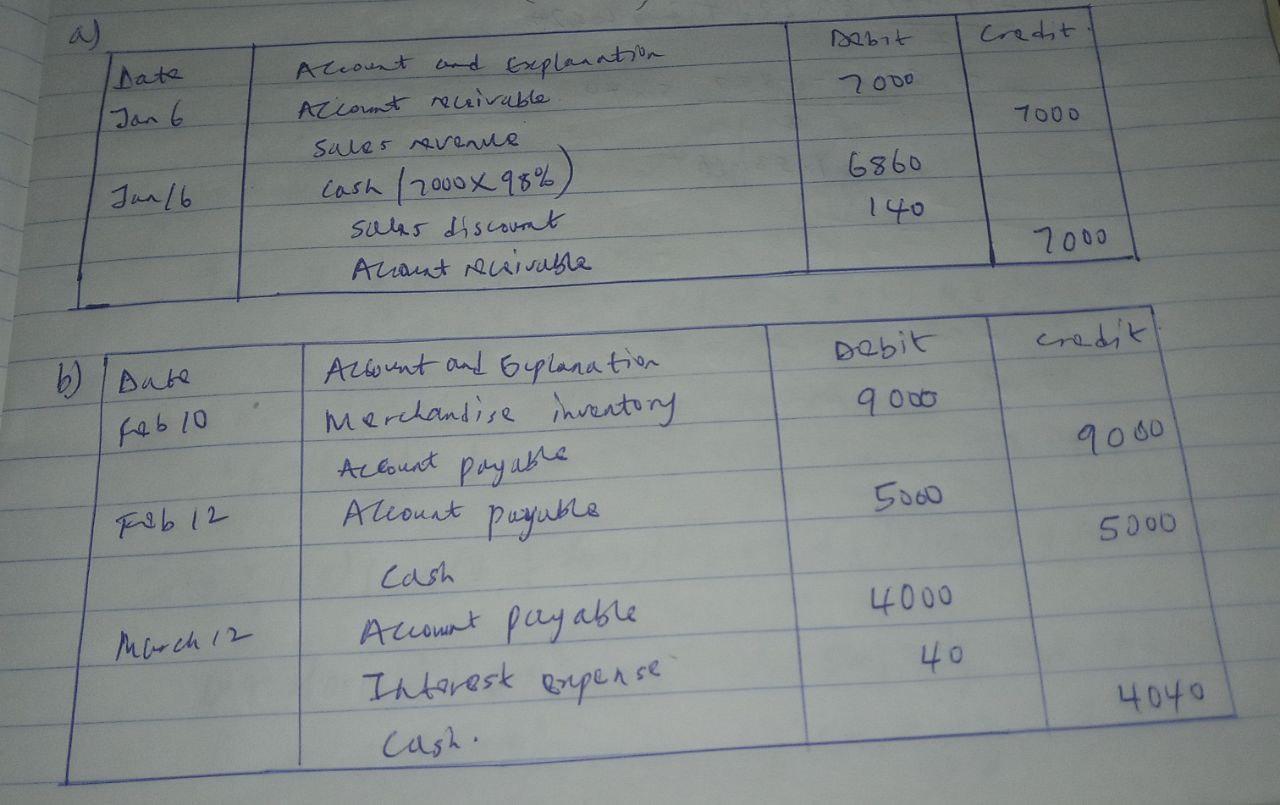 a)
Date Account and Explanation Debit Credit.
Jan 6 Account receivable 7000
Sales revenue 7000
Jan 16 Cash (7000 x 98%) 6860
Sales discount 140
Account receivable 7000
b) Date Account and Explanation Debit Credit
Feb 10 Merchandise inventory 9000
Account payable 9000
Feb 12 Account payable 5000
Cash 5000
March 12 Account payable 4000
Interest expense 40
Cash. 4040